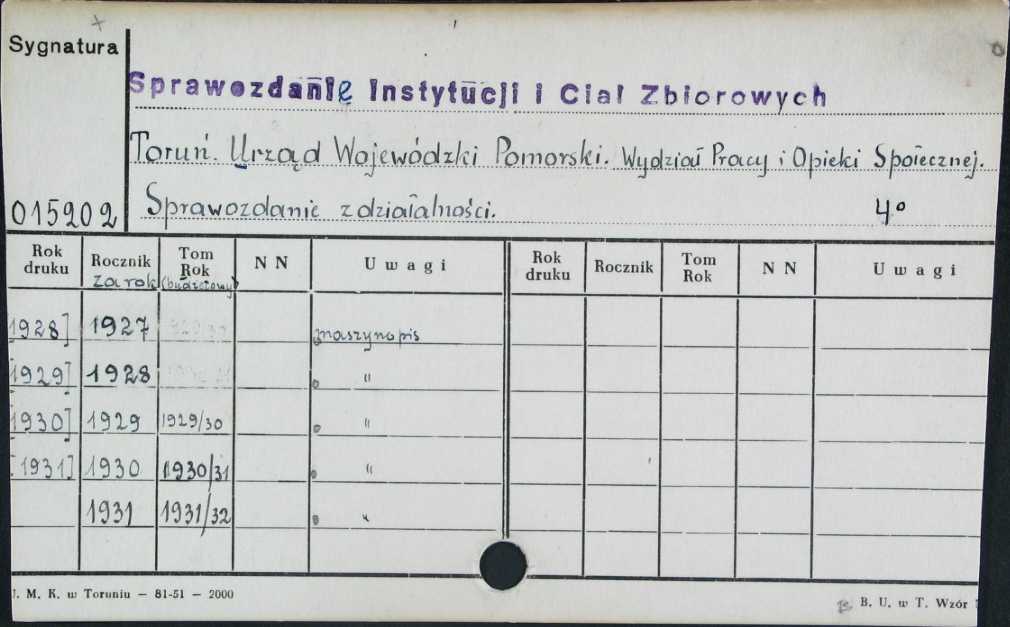 Sygnatura
Sprawozdanie Instytucji i Ciał Zbiorowych
Toruń. Urząd Wojewódzki Pomorski. Wydział Pracy i Opieki Społecznej.
015202 Sprawozdanie z działalności. 4°
Rok druku Rocznik za rok Tom Rok (budżetowy) N N Uwagi Rok druku Rocznik Tom Rok N N Uwagi
1928] 1927 maszynopis
[1929] 1928 "
1930] 1929 1929/30 "
[1931] 1930 1930/31 "
1931 1931/32 "
J. M. K. w Toruniu – 81-51 – 2000
B. U. w T. Wzór